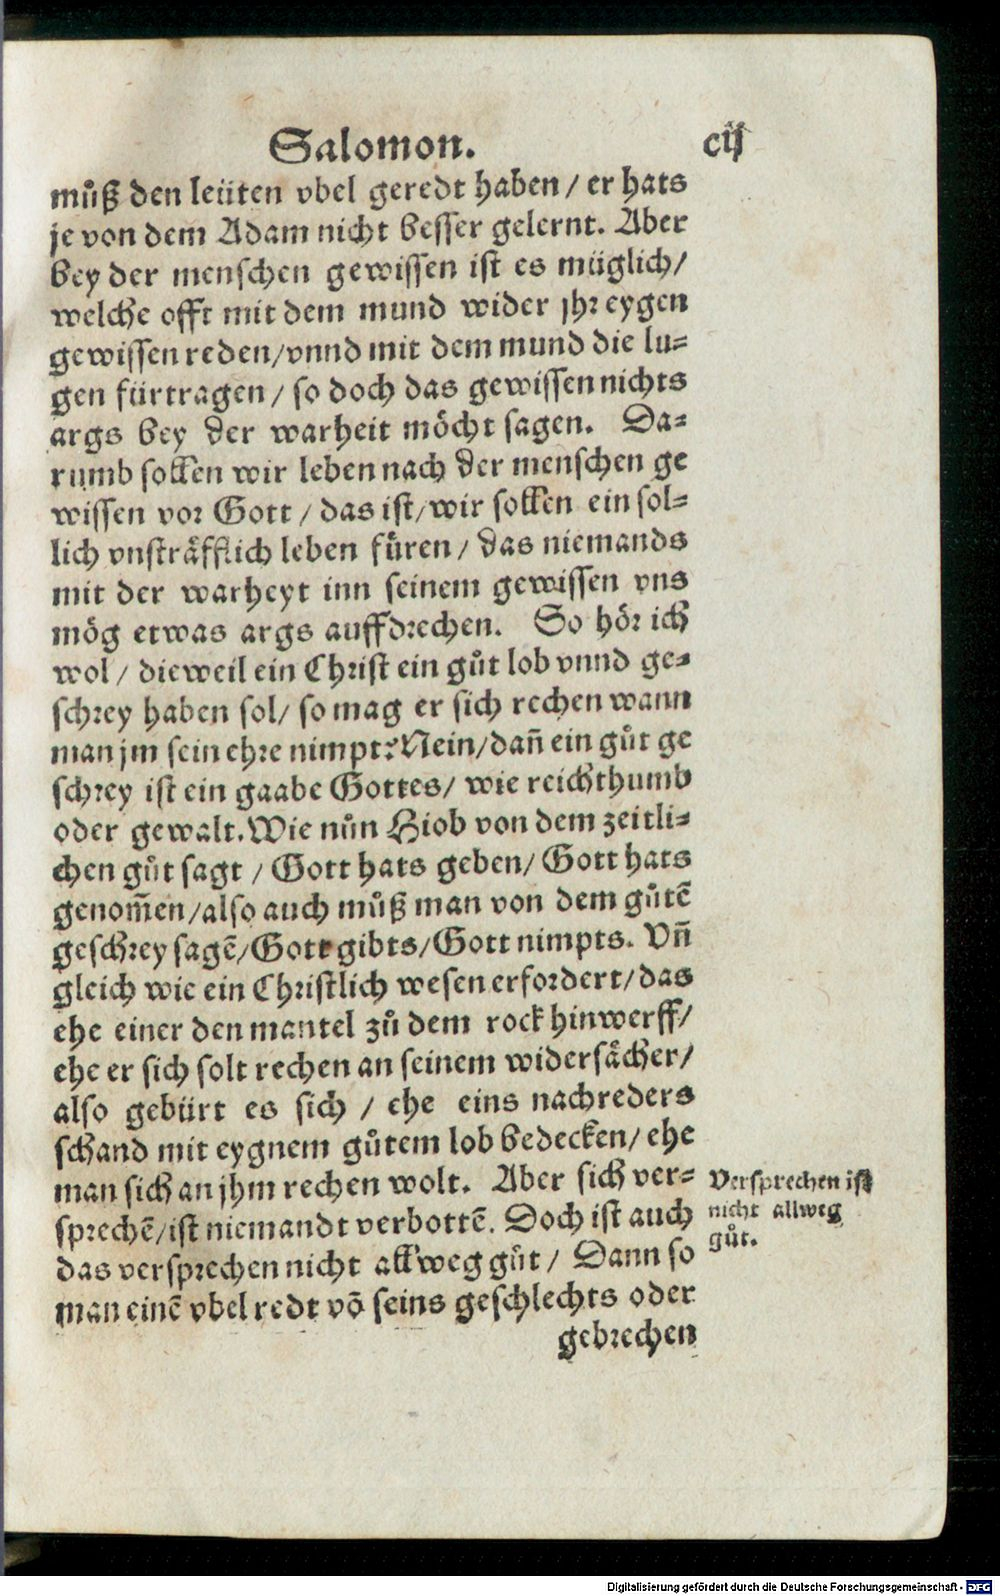 Salomon. cij
můß den leüten vbel geredt haben / er hats
je von dem Adam nicht besser gelernt. Aber
bey der menschen gewissen ist es müglich/
welche offt mit dem mund wider jhr eygen
gewissen reden/vnnd mit dem mund die lu⸗
gen fürtragen / so doch das gewissen nichts
args bey der warheit möcht sagen. Da⸗
rumb sollen wir leben nach der menschen ge
wissen vor Gott / das ist/wir sollen ein sol⸗
lich vnsträfflich leben füren / das niemands
mit der warheyt inn seinem gewissen vns
mög etwas args auffdrechen. So hör ich
wol / dieweil ein Christ ein gůt lob vnnd ge⸗
schrey haben sol/ so mag er sich rechen wann
man jm sein ehre nimpt? Nein/dañ ein gůt ge
schrey ist ein gaabe Gottes/ wie reichthumb
oder gewalt. Wie nůn Hiob von dem zeitli⸗
chen gůt sagt / Gott hats geben/ Gott hats
genom̄en/also auch můß man von dem gůtē
geschrey sagē/Gott gibts/Gott nimpts. Vñ
gleich wie ein Christlich wesen erfordert/das
ehe einer den mantel zů dem rock hinwerff/
ehe er sich solt rechen an seinem widersächer/
also gebürt es sich / ehe eins nachreders
schand mit eygnem gůtem lob bedecken/ ehe
man sich an jhm rechen wolt. Aber sich ver⸗
sprechē/ist niemandt verbottē. Doch ist auch
das versprechen nicht allweg gůt / Dann so
man einē vbel redt vō seins geschlechts oder
gebrechen
Versprechen ist
nicht allweg
gůt.
Digitalisierung gefördert durch die Deutsche Forschungsgemeinschaft - DFG